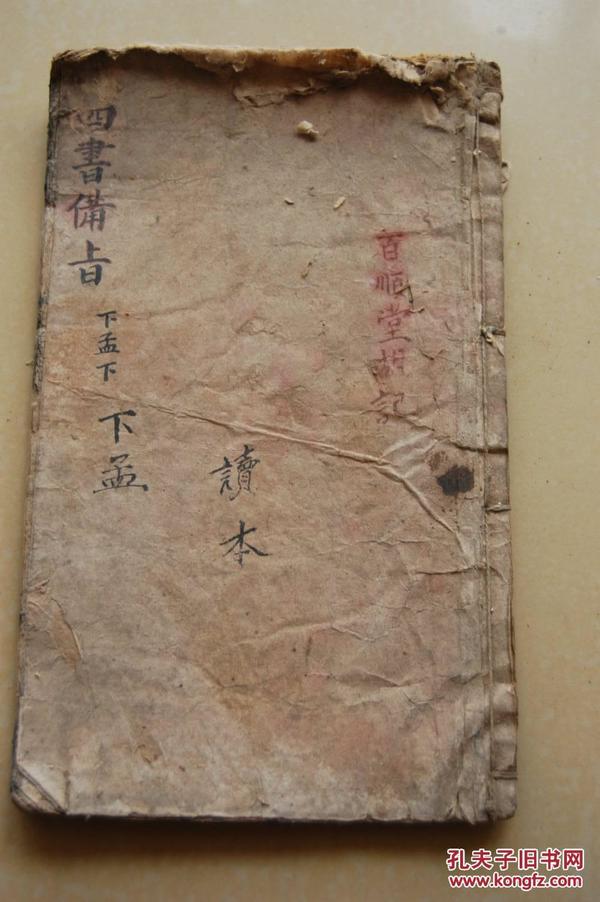 百順堂胡記
讀本
四書備旨
下孟下
下孟
孔夫子旧书网
www.kongfz.com